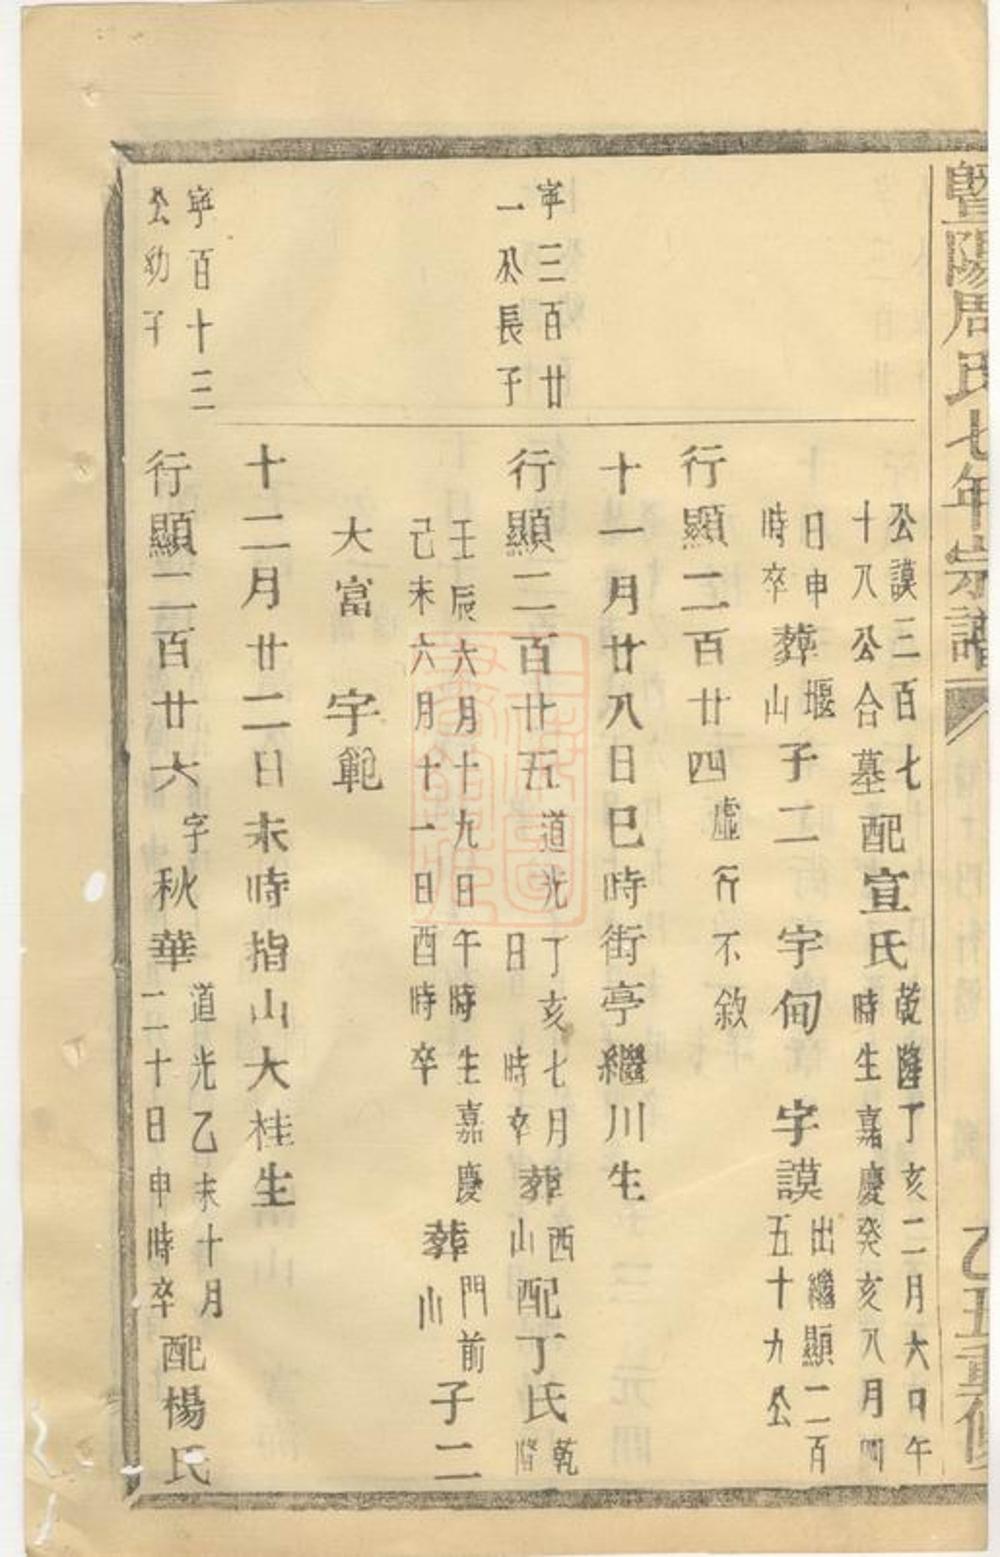 暨陽周氏七年宗譜 乙丑重修
公謨三百七
十八公合墓
配宣氏
乾隆丁亥二月六日午
時生嘉慶癸亥八月卯
日申
時卒
葬
堰
山
子二
字甸
字謨
出繼顯二百
五十九公
行顯二百廿四
虛行不敘
十一月廿八日巳時街亭繼川生
寧三百廿
一公長子
行顯二百廿五
道光丁亥七月
日
時卒
葬
西
山
配丁氏
乾
隆
壬辰六月十九日午時生嘉慶
己未六月十一日酉時卒
葬
門前
山
子二
大富
字範
十二月廿二日未時指山大桂生
寧百十三
公幼子
行顯二百廿六
字
秋華
道光乙未十月
二十日申時卒
配楊氏